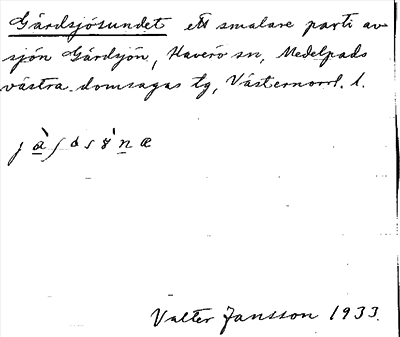 Gårdsjösundet ett smalare parti av
sjön Gårdsjön, Haverö sn, Medelpads
västra domsagas tg, Västernorrl. l.
Valter Jansson 1933.